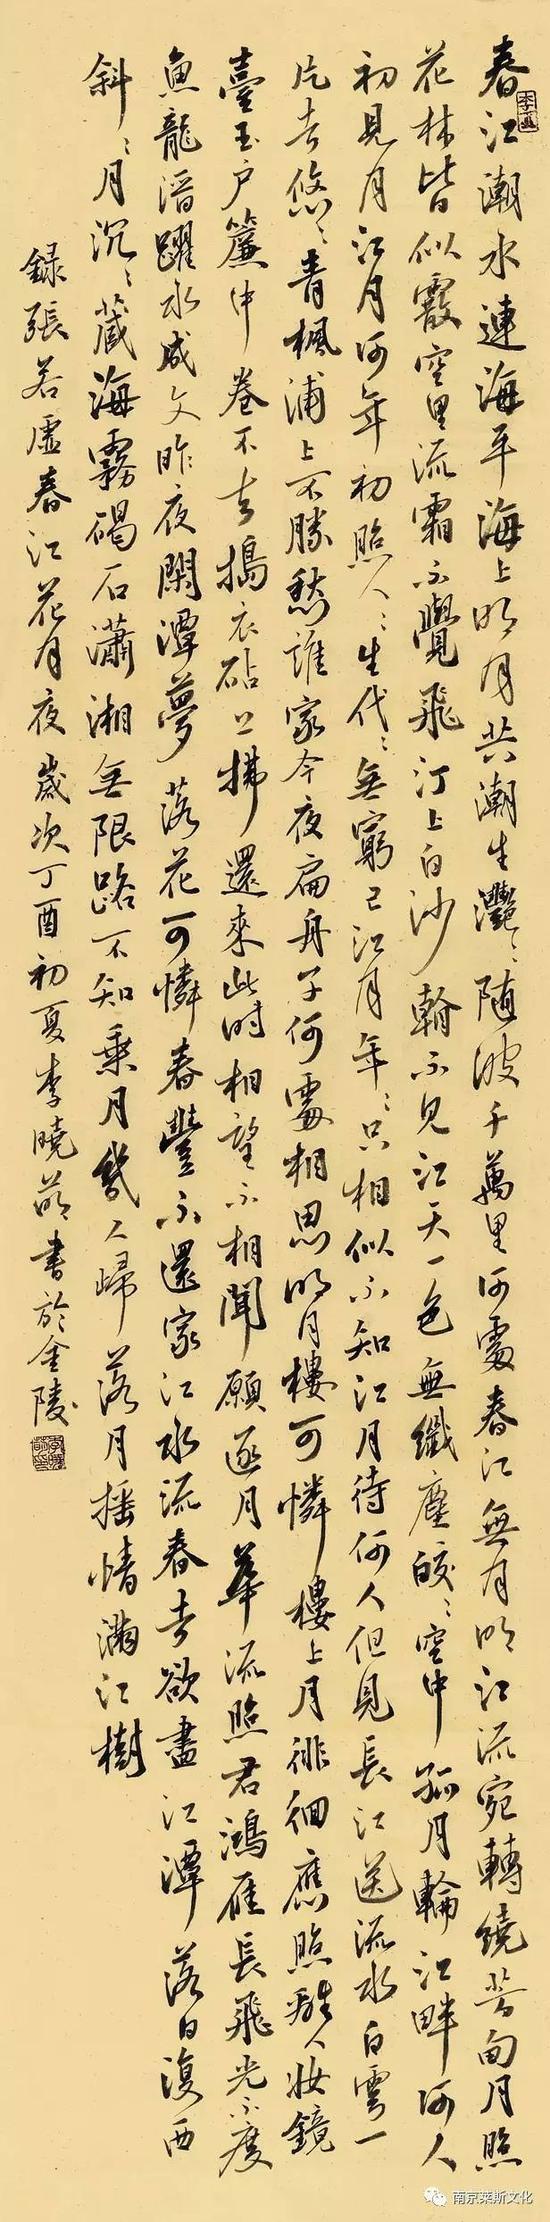 春江潮水連海平海上明月共潮生灔〻隨波千萬里何處春江無月明江流宛轉繞芳甸月照
花林皆似霰空里流霜不覺飛汀上白沙看不見江天一色無纖塵皎〻空中孤月輪江畔何人
初見月江月何年初照人〻生代〻無窮已江月年〻只相似不知江月待何人但見長江送流水白雲一
片去悠〻青楓浦上不勝愁誰家今夜扁舟子何處相思明月樓可憐樓上月徘徊應照離人妝鏡
臺玉户簾中卷不去搗衣砧上拂還來此時相望不相聞願逐月華流照君鴻雁長飛光不度
魚龍潛躍水成文昨夜閑潭夢落花可憐春半不還家江水流春去欲盡江潭落月復西
斜〻月沉〻藏海霧碣石瀟湘無限路不知乘月幾人歸落月摇情滿江樹
録張若虛春江花月夜歲次丁酉初夏李曉書於金陵
南京莱斯文化